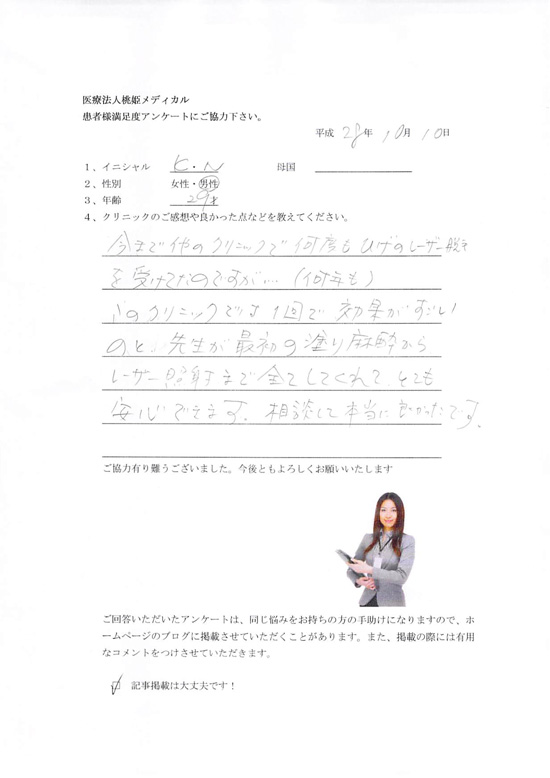 医療法人桃姫メディカル
患者様満足度アンケートにご協力下さい。
平成 28年 10月 10日
1、イニシャル K・N 母国
2、性別 女性・男性
3、年齢 29才
4、クリニックのご感想や良かった点などを教えてください。
今まで他のクリニックで何度もひげのレーザー脱毛
を受けてたのですが…(何年も)
このクリニックでは1回で効果がすごい
のと、先生が最初の塗り麻酔から
レーザー照射まで全てしてくれて、とても
安心できます。相談して本当に良かったです。
ご協力有り難うございました。今後ともよろしくお願いいたします
ご回答いただいたアンケートは、同じ悩みをお持ちの方の手助けになりますので、ホ
ームページのブログに掲載させていただくことがあります。また、掲載の際には有用
なコメントをつけさせていただきます。
記事掲載は大丈夫です!